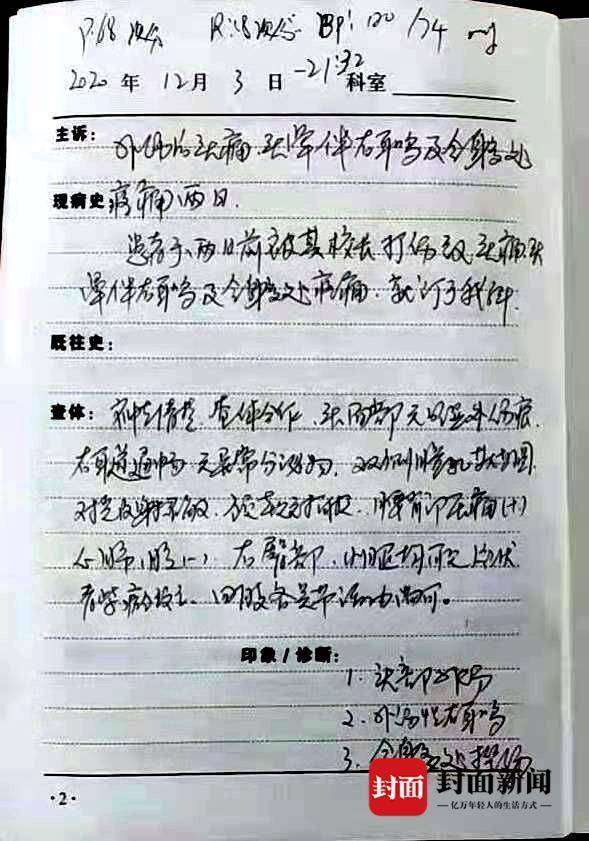 P:68次/分 R:18次/分 BP:120/74 mg
2020年12月3日-21:32科室
主诉:外伤后头痛头晕伴右耳鸣及全身多处
现病史:疼痛两日.
患者于两日前被其校长打伤致头痛头
晕伴右耳鸣及全身多处疼痛.就诊于我科.
既往史:
查体:神志清楚.查体合作.头面部无明显外伤痕
右耳道通畅无异常分泌物.双侧瞳孔等大等圆
对光反射灵敏.颈软无抵抗.腰背部压痛(+)
心肺腹(-).右臀部.小腿均可见片状
青紫.四肢各关节活动尚可。
印象/诊断:
1.头部外伤
2.外伤性右耳鸣
3.全身多处挫伤
·2·
封面
封面新闻
亿万年轻人的生活方式